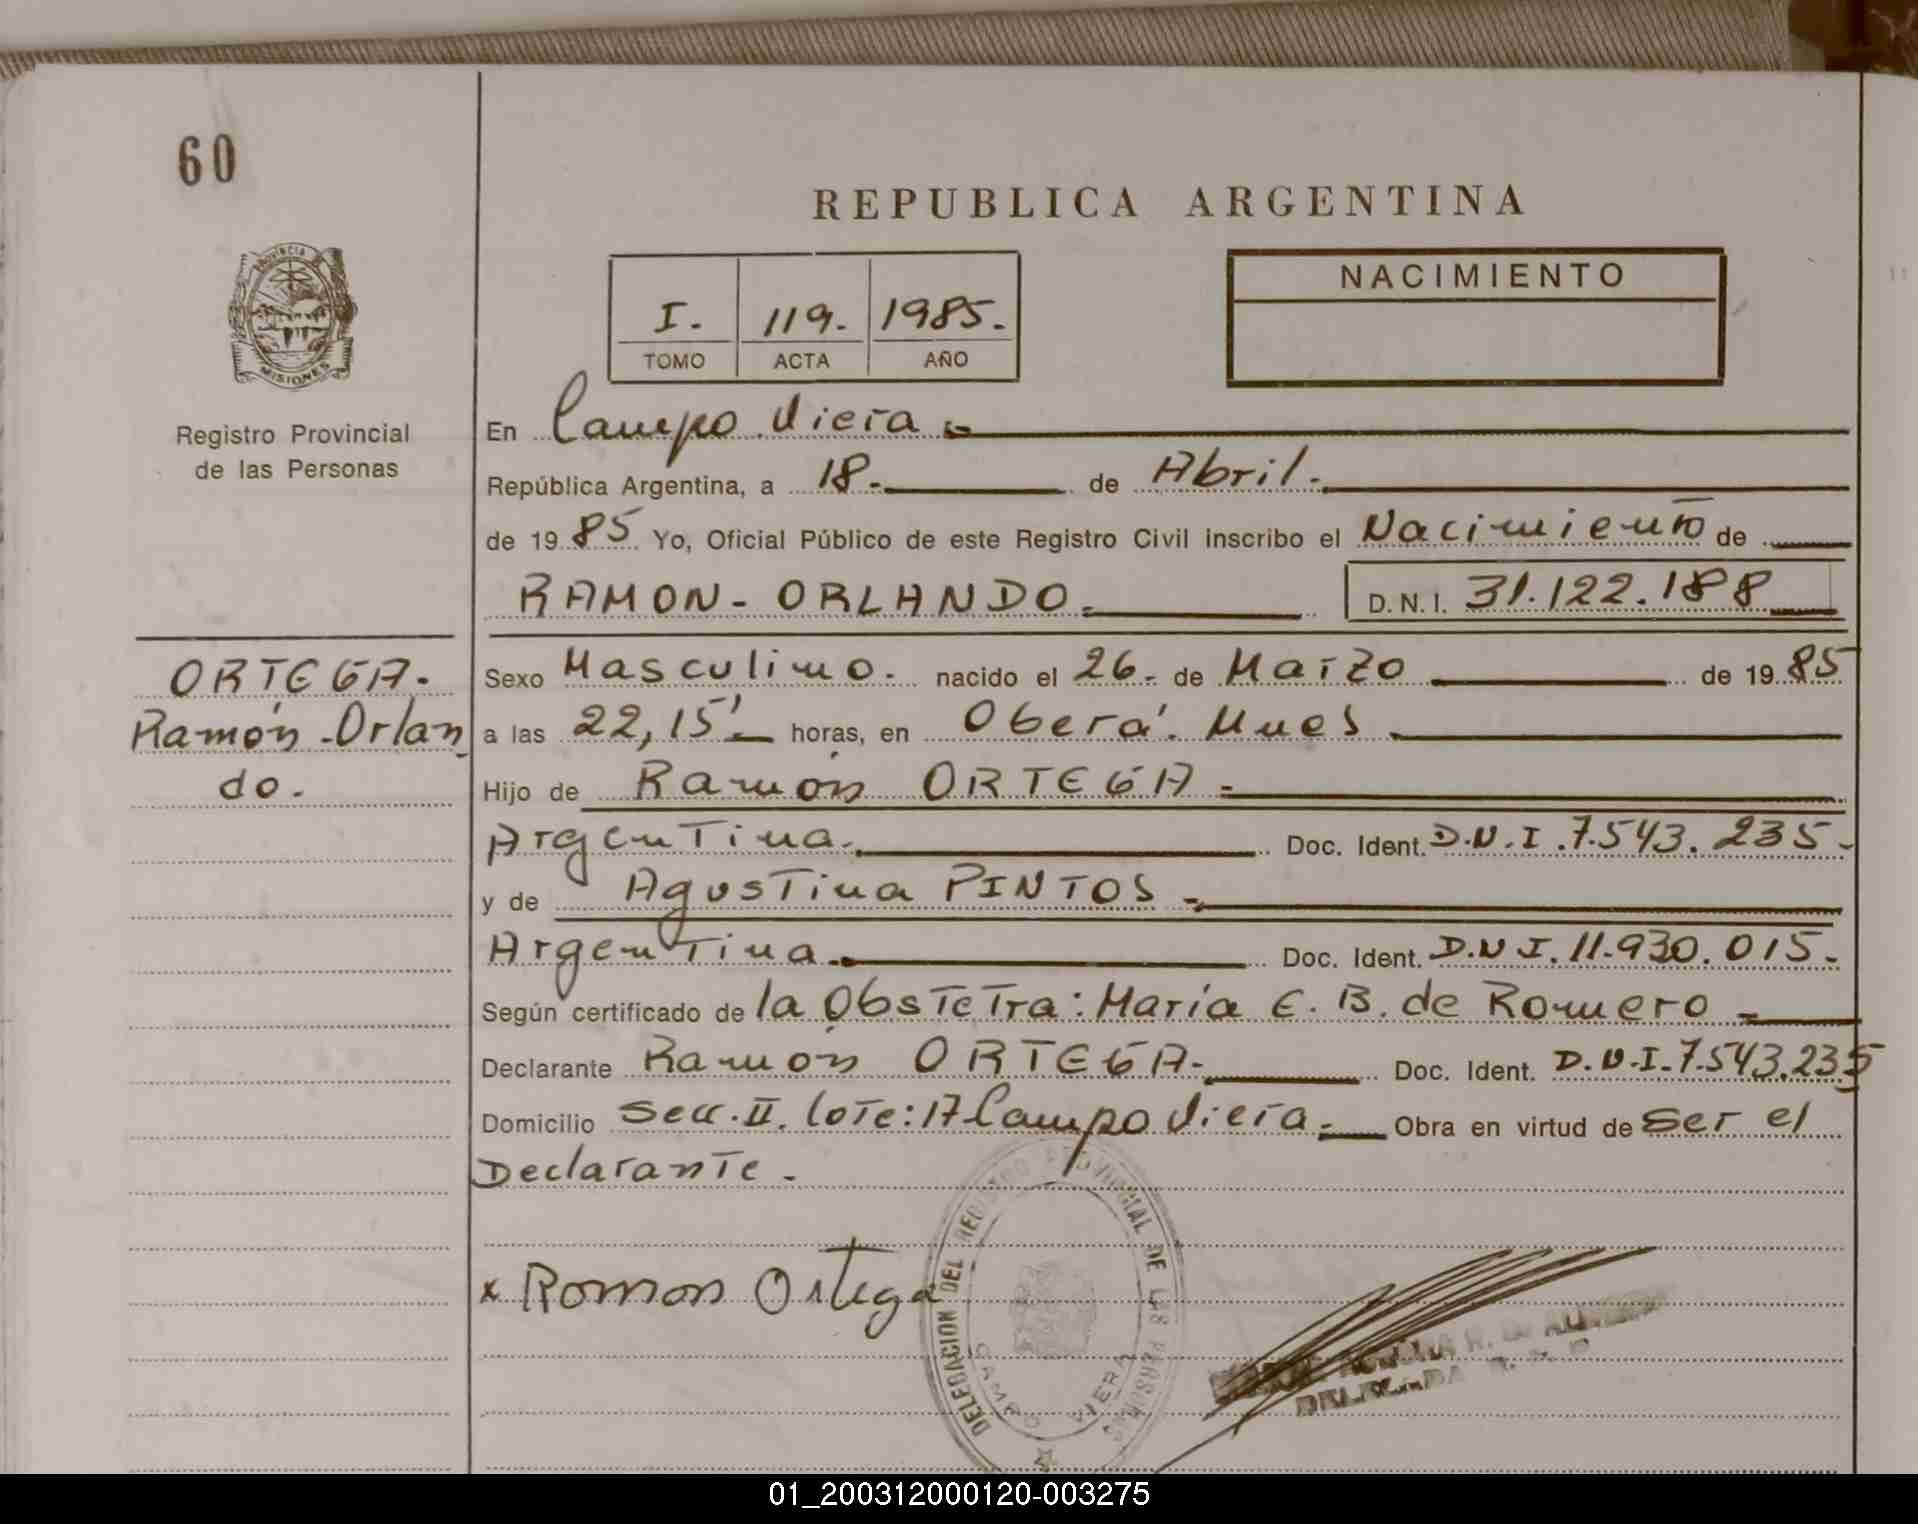 60
REPUBLICA ARGENTINA
PROVINCIA D
MISIONES
Registro Provincial
de las Personas
I. 119. 1985.
TOMO ACTA AÑO
NACIMIENTO
En Campo Viera.-
República Argentina, a 18.- de Abril.-
de 1985 Yo, Oficial Público de este Registro Civil inscribo el Nacimiento de
RAMON - ORLANDO.- D.N.I. 31.122.188
ORTEGA.
Ramón - Orlan
do.
Sexo Masculino. nacido el 26.- de Marzo de 1985
a las 22,15'.- horas, en Oberá. Mnes.
Hijo de Ramón ORTEGA.-
Argentina. Doc. Ident. D.N.I. 7.543.235.-
y de Agustina PINTOS.-
Argentina. Doc. Ident. D.N.I. 11.930.015.-
Según certificado de la Obstetra: María E. B. de Romero.-
Declarante Ramón ORTEGA.- Doc. Ident. D.N.I. 7.543.235
Domicilio Secc. II. Lote: 17 Campo Viera.- Obra en virtud de ser el
Declarante.-
x Romon Ortega
DELEGACION DEL REGISTRO PROVINCIAL DE LAS PERSONAS
CAMPO VIERA
DELEGADA
01_200312000120-003275